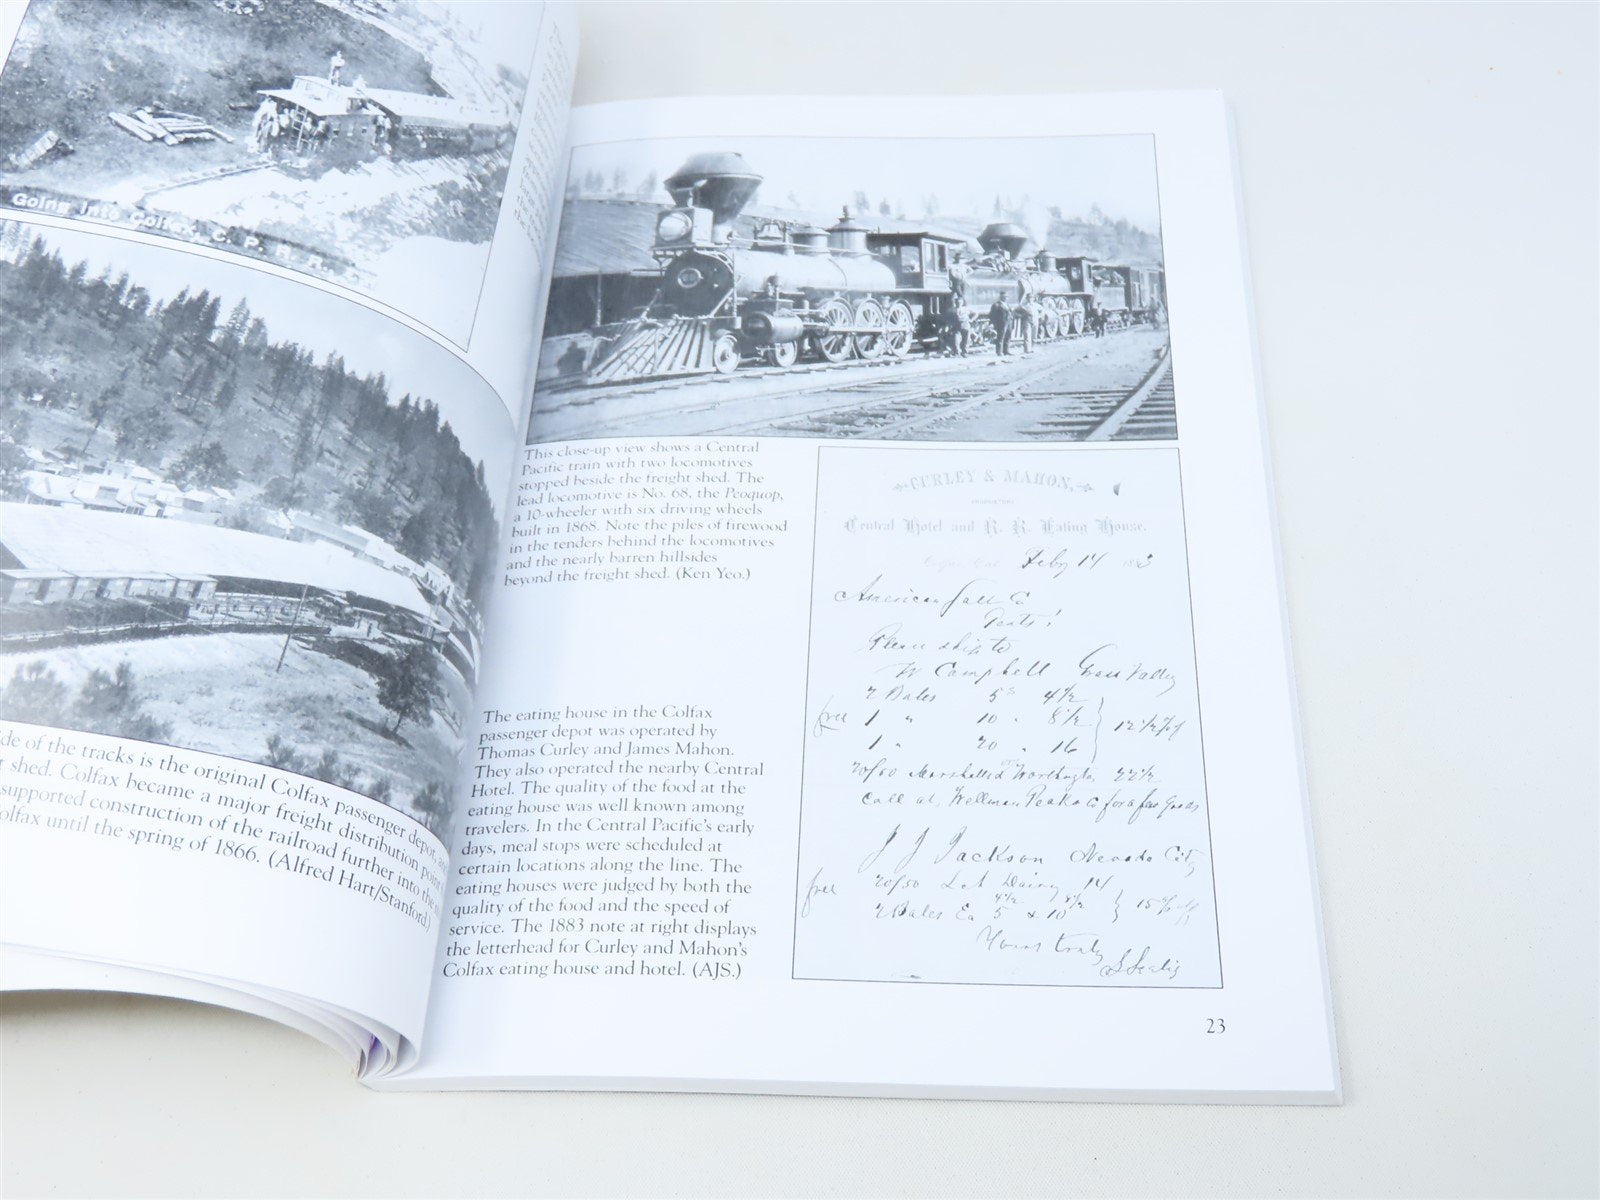 Going into Colfax, C. P. R. R.
ide of the tracks is the original Colfax passenger depot, a
t shed. Colfax became a major freight distribution point
supported construction of the railroad further into the
olfax until the spring of 1866. (Alfred Hart/Stanford)
This close-up view shows a Central
Pacific train with two locomotives
stopped beside the freight shed. The
lead locomotive is No. 68, the Peoquop,
a 10-wheeler with six driving wheels
built in 1868. Note the piles of firewood
in the tenders behind the locomotives
and the nearly barren hillsides
beyond the freight shed. (Ken Yeo.)
The eating house in the Colfax
passenger depot was operated by
Thomas Curley and James Mahon.
They also operated the nearby Central
Hotel. The quality of the food at the
eating house was well known among
travelers. In the Central Pacific's early
days, meal stops were scheduled at
certain locations along the line. The
eating houses were judged by both the
quality of the food and the speed of
service. The 1883 note at right displays
the letterhead for Curley and Mahon's
Colfax eating house and hotel. (AJS.)
CURLEY & MAHON,
PROPRIETORS
Central Hotel and R. R. Eating House.
Colfax, Cal. Feby 14 1883
American Salt Co
Gents!
Please ship to
W Campbell Grass Valley
2 Bales 5s 4 1/2
free 1 " 10 " 8 1/2
1 " 20 " 16
20/50 Worthington 22 1/2
call at Wellman Peck & Co for a few Goods
J J Jackson Nevada City
free 20/50 Lot Dairy 14
2 Bales Ea 5 & 10
Yours truly
23